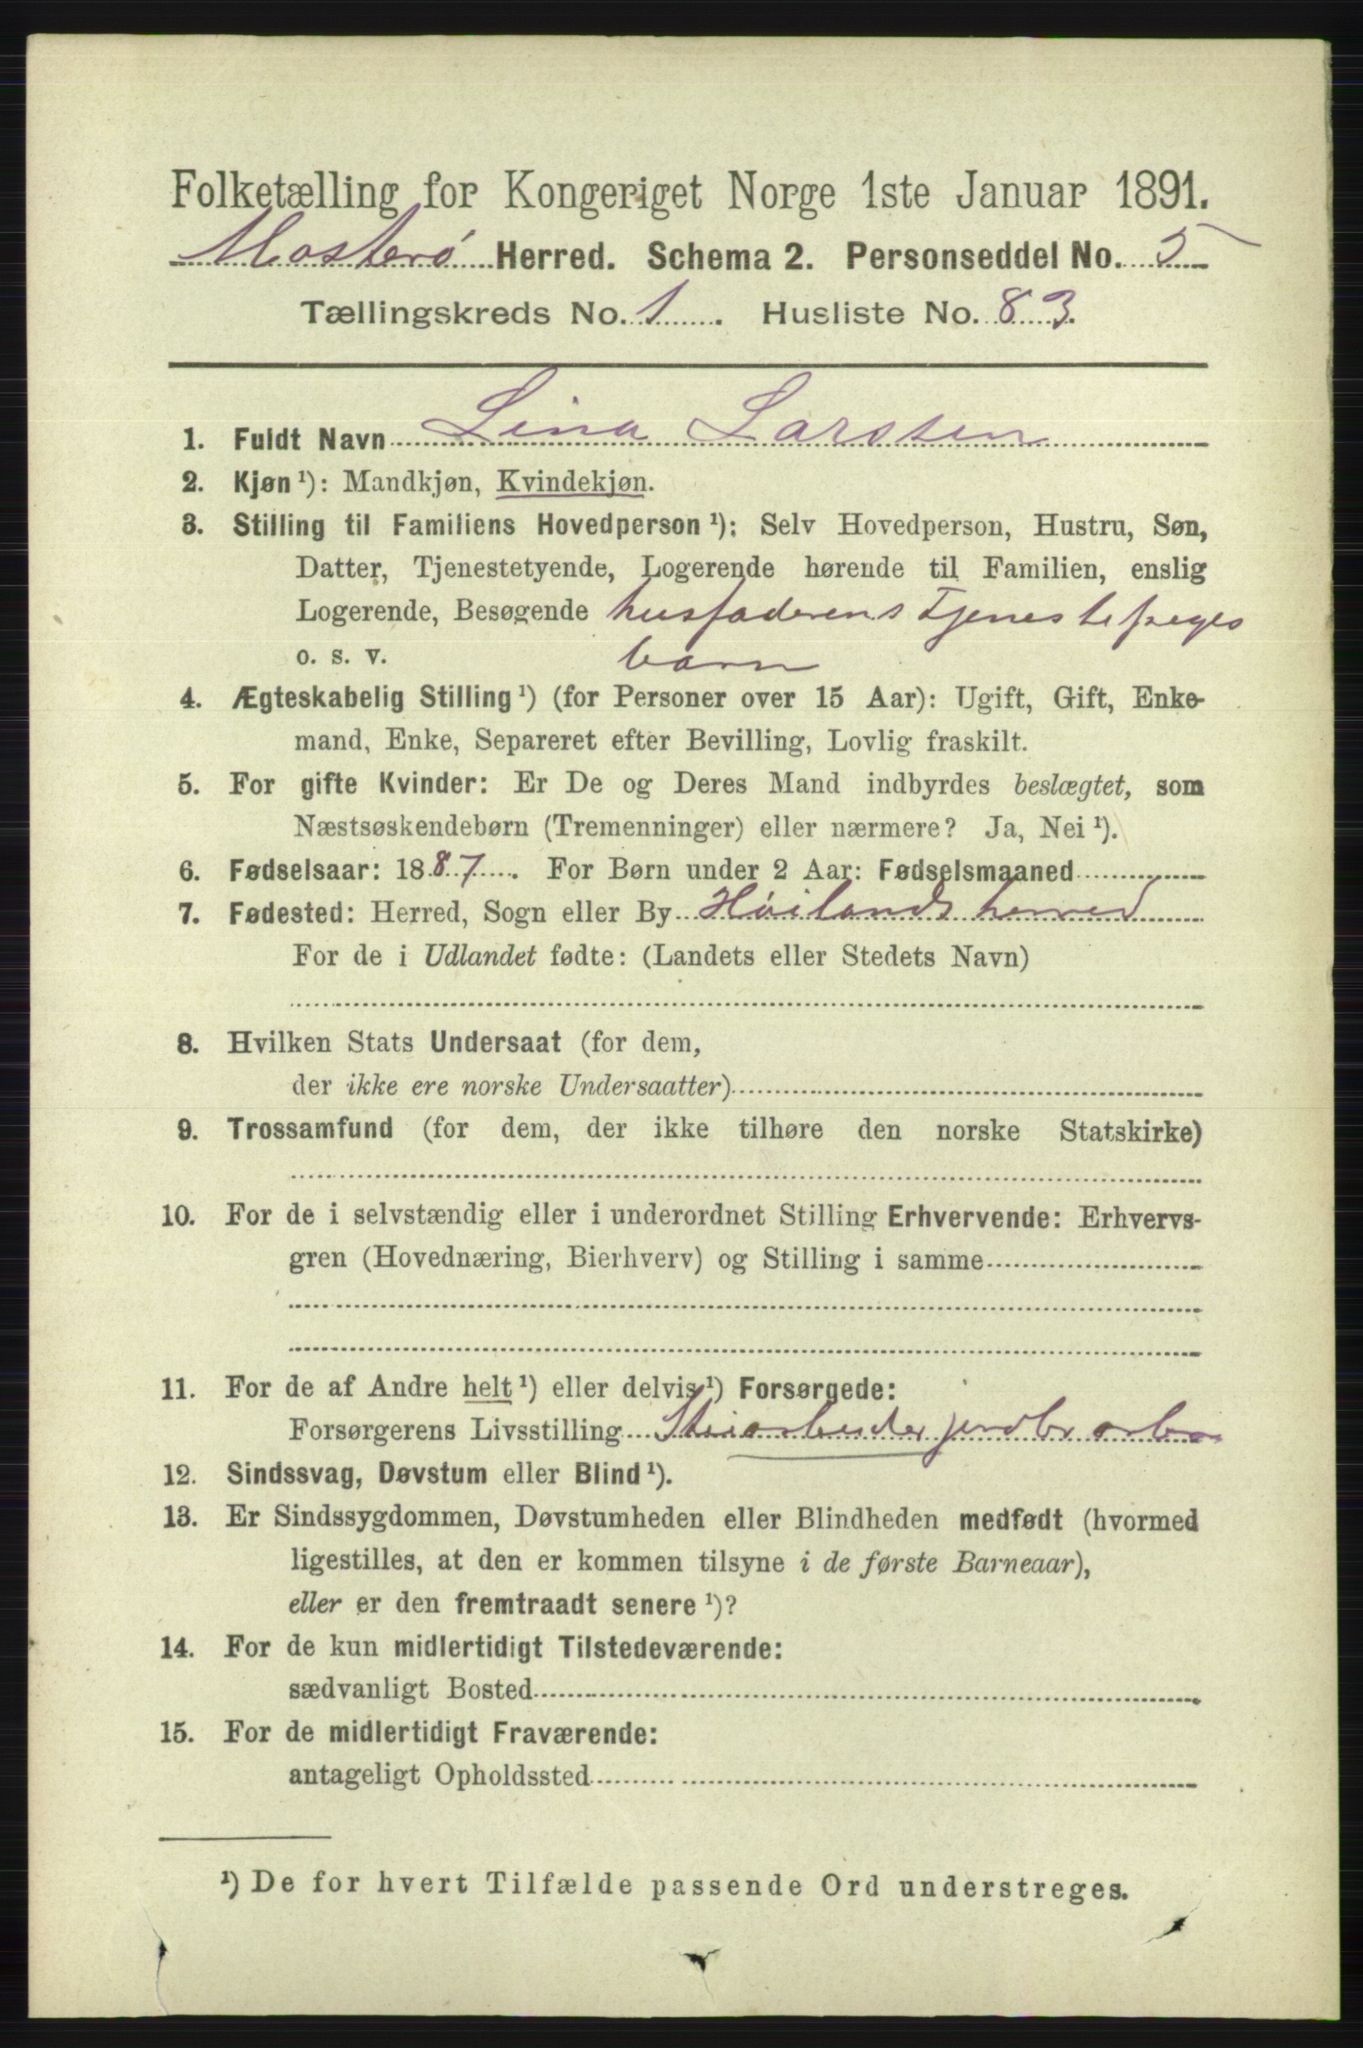 Folketælling for Kongeriget Norge 1ste Januar 1891.
Mosterø Herred. Schema 2. Personseddel No. 5
Tællingskreds No. 1. Husliste No. 83.
1. Fuldt Navn Lina Larsen
2. Kjøn ¹): Mandkjøn, Kvindekjøn.
3. Stilling til Familiens Hovedperson ¹): Selv Hovedperson, Hustru, Søn,
Datter, Tjenestetyende, Logerende hørende til Familien, enslig
Logerende, Besøgende husfaderens tjenestepiges
o. s. v. barn
4. Ægteskabelig Stilling ¹) (for Personer over 15 Aar): Ugift, Gift, Enke-
mand, Enke, Separeret efter Bevilling, Lovlig fraskilt.
5. For gifte Kvinder: Er De og Deres Mand indbyrdes beslægtet, som
Næstsøskendebørn (Tremenninger) eller nærmere? Ja, Nei ¹).
6. Fødselsaar: 1887. For Børn under 2 Aar: Fødselsmaaned
7. Fødested: Herred, Sogn eller By Høilands herred
For de i Udlandet fødte: (Landets eller Stedets Navn)
8. Hvilken Stats Undersaat (for dem,
der ikke ere norske Undersaatter)
9. Trossamfund (for dem, der ikke tilhøre den norske Statskirke)
10. For de i selvstændig eller i underordnet Stilling Erhvervende: Erhvervs-
gren (Hovednæring, Bierhverv) og Stilling i samme
11. For de af Andre helt ¹) eller delvis ¹) Forsørgede:
Forsørgerens Livsstilling
12. Sindssvag, Døvstum eller Blind ¹).
13. Er Sindssygdommen, Døvstumheden eller Blindheden medfødt (hvormed
ligestilles, at den er kommen tilsyne i de første Barneaar),
eller er den fremtraadt senere ¹)?
14. For de kun midlertidigt Tilstedeværende:
sædvanligt Bosted
15. For de midlertidigt Fraværende:
antageligt Opholdssted
¹) De for hvert Tilfælde passende Ord understreges.